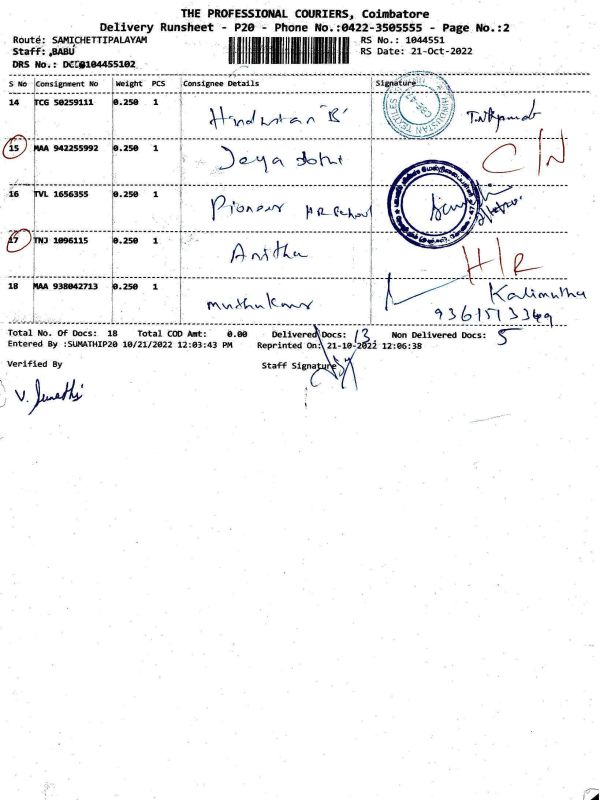 THE PROFESSIONAL COURIERS, Coimbatore
Delivery Runsheet - P20 - Phone No.:0422-3505555 - Page No.:2
Route: SAMICHETTIPALAYAM
RS No.: 1044551
Staff: BABU
RS Date: 21-Oct-2022
DRS No.:
S No Consignment No Weight PCS Consignee Details Signature
14 TCG 50259111 0.250 1 Hindustan 'B'
HINDUSTAN TEXTILES
15 MAA 942255992 0.250 1 Jeya
C/N
16 TVL 1656355 0.250 1 Pioneer HR School
17 TNJ 1096115 0.250 1 Anitha
H/R
18 MAA 938042713 0.250 1 muthukumar
Kalimutha
Total No. Of Docs: 18 Total COD Amt: 0.00 Delivered Docs: 13 Non Delivered Docs: 5
Entered By :SUMATHIP20 10/21/2022 12:03:43 PM Reprinted On: 21-10-2022 12:06:38
Verified By
Staff Signature
V. Sumathi